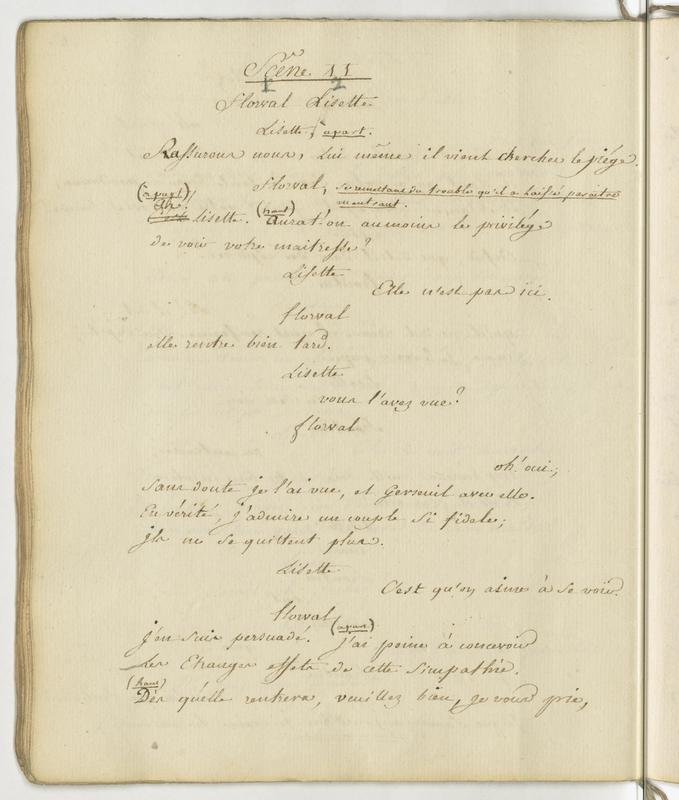 Scène 11
1 2
Florval Lisette
Lisette, apart.
Rassurons nous, lui même il vient chercher le piége.
Florval, se remettant du trouble qu'il a laissé paraitre
(apart) en entrant.
Ah! Lisette. (haut) Aurat'on aumoins le privilége
de voir votre maitresse?
Lisette
Elle n'est pas ici.
florval
elle rentre bien tard.
Lisette
vous l'avez vue?
florval
oh! oui;
sans doute je l'ai vue, et Gerseuil avec elle.
En vérité, j'admire un couple si fidele;
ils ne se quittent plus.
Lisette
C'est qu'on aime à se voir.
florval
J'en suis persuadé. (apart) J'ai peine à concevoir
Les Etranges effets de cette simpathie.
(haut)
Dès qu'elle rentrera, veuillez bien, je vous prie,